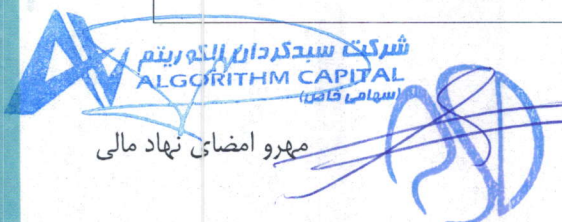 شرکت سبدگردان الگوریتم
ALGORITHM CAPITAL
(سهامی خاص)
مهرو امضای نهاد مالی